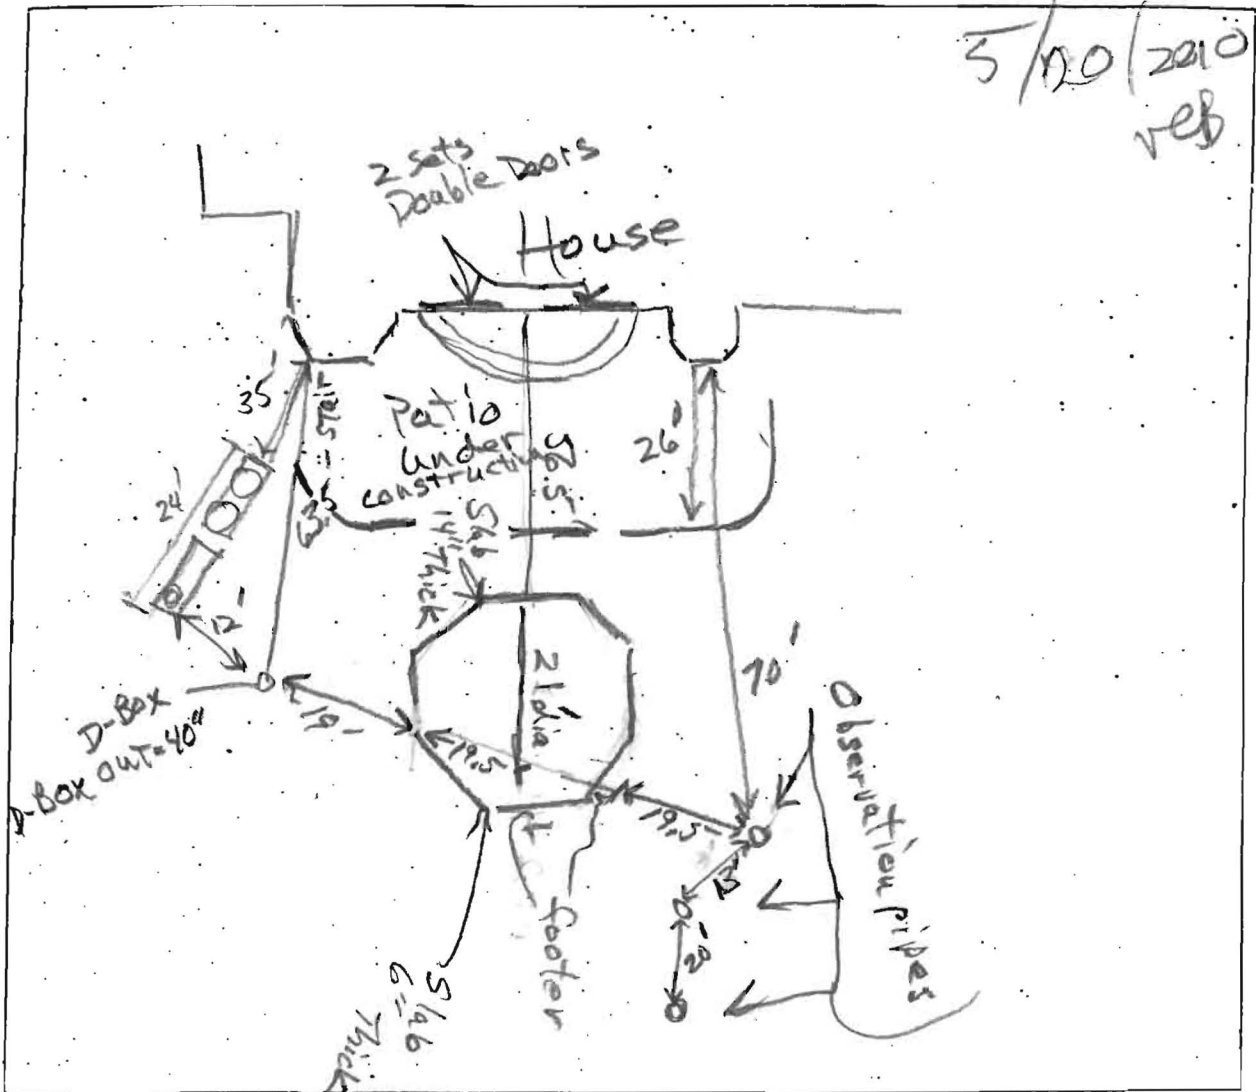 5/20/2010
2 Sets
Double Doors
House
35'
Patio
under
construction
26'
24'
Slab
14" Thick
12'
21' dia
70'
D-Box
D-Box out=40"
19'
19.5
19.5'
Observation pipes
20'
footer
Slab
6" Thick